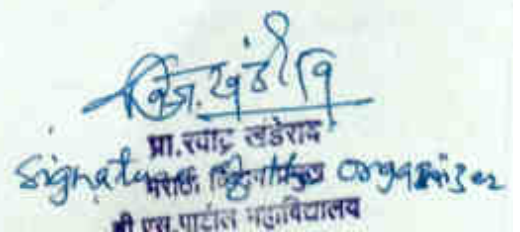 प्रा. रवींद्र खंडेराव
Signature of the organiser
मराठी विभाग प्रमुख
बी एस. पाटील महाविद्यालय